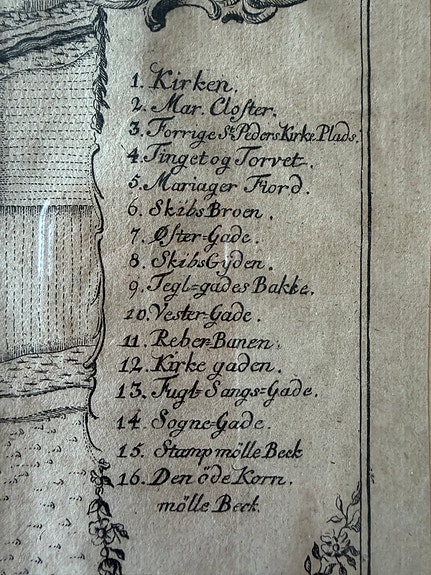 1. Kirken.
2. Mar. Closter.
3. Forrige St. Peders Kirke Plads.
4. Tinget og Torvet.
5. Mariager Fiord.
6. SkibsBroen.
7. Øster=Gade.
8. SkibsGyden.
9. Tegl=gades Bakke.
10. Vester=Gade.
11. Reber=Banen.
12. Kirke gaden.
13. Fugl=Sangs=Gade.
14. Sogne=Gade.
15. Stampmölle Beck
16. Den öde Korn.
mölle Beck.